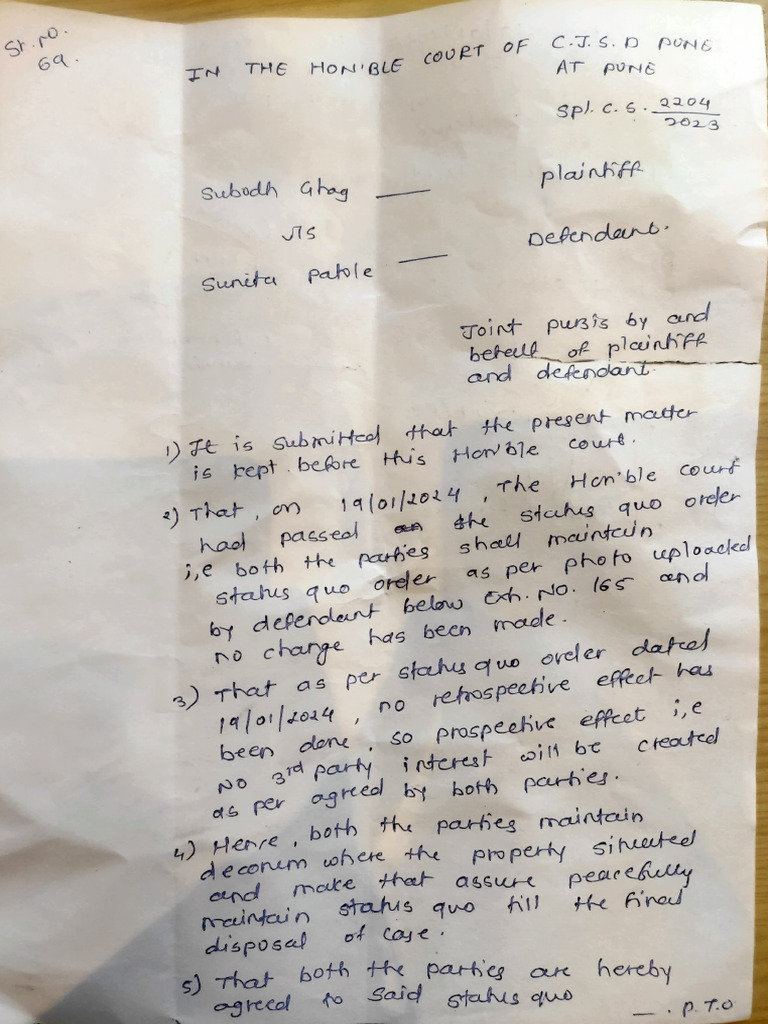 Sr. no.
69.
IN THE HON'BLE COURT OF C.J.S.D PUNE
AT PUNE
Spl. C. S. 2204/2023
Subodh Ghag — plaintiff
V/S
Sunita Patole — Defendant.
Joint purzis by and
behalf of plaintiff
and defendant.
1) It is submitted that the present matter
is kept before this Hon'ble court.
2) That, on 19/01/2024, The Hon'ble court
had passed the status quo order
i,e both the parties shall maintain
status quo order as per photo uploaded
by defendant below Exh. No. 165 and
no change has been made.
3) That as per status quo order dated
19/01/2024, no retrospective effect has
been done. so prospective effect i,e
No 3rd party interest will be created
as per agreed by both parties.
4) Hence, both the parties maintain
decorum where the property situated
and make that assure peacefully
maintain status quo till the final
disposal of case.
5) That both the parties are hereby
agreed to said status quo
—. P.T.O